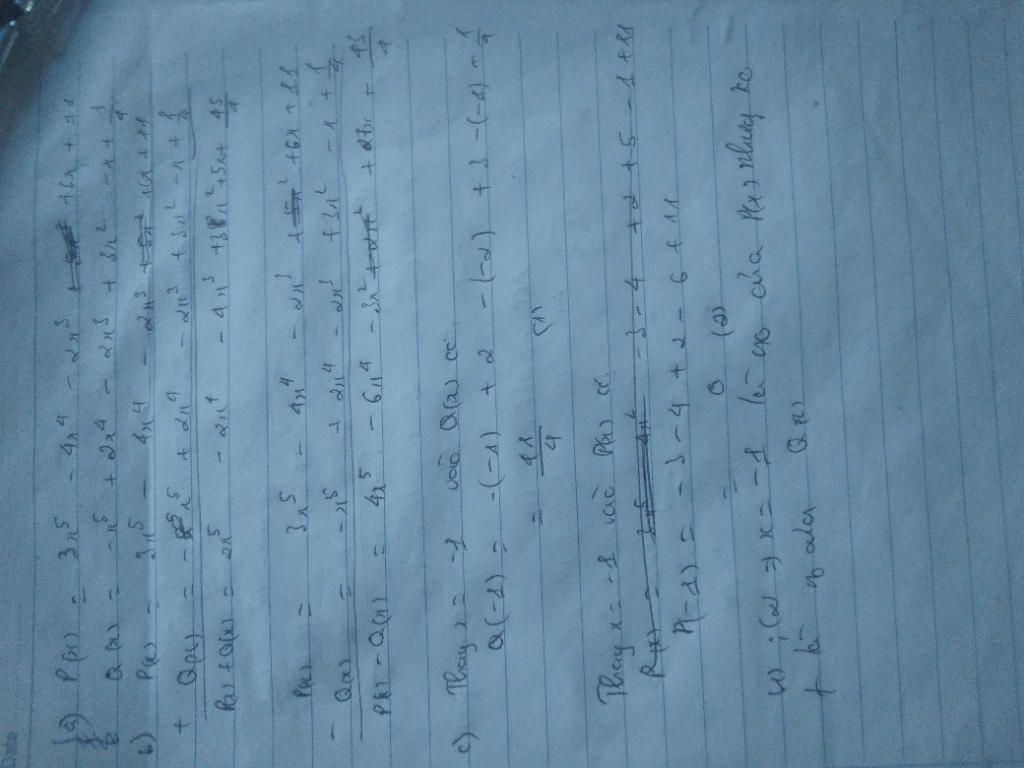 Date
a) P(x) = 3x⁵ - 4x⁴ - 2x³ + 6x + 11
Q(x) = -x⁵ + 2x⁴ - 2x³ + 3x² - x + 1/4
b) P(x) = 3x⁵ - 4x⁴ - 2x³ + 6x + 11
+ Q(x) = - x⁵ + 2x⁴ - 2x³ + 3x² - x + 1/4
P(x) + Q(x) = 2x⁵ - 2x⁴ - 4x³ + 3x² + 5x + 45/4
P(x) = 3x⁵ - 4x⁴ - 2x³ + 6x + 11
- Q(x) = -x⁵ + 2x⁴ - 2x³ + 3x² - x + 1/4
P(x) - Q(x) = 4x⁵ - 6x⁴ - 3x² + x + 43/4
c) Thay x = -1 vào Q(x) có
Q(-1) = -(-1) + 2 - (-2) + 3 - (-1) + 1/4
= 41/4 (1)
Thay x = -1 vào P(x) có
P(x) - 3 - 4 + 2 + 5 - 1 + 11
P(-1) = -3 - 4 + 2 - 6 + 11
= 0 (2)
(1); (2) => x = -1 là no của P(x) nhưng ko
là của Q(x)